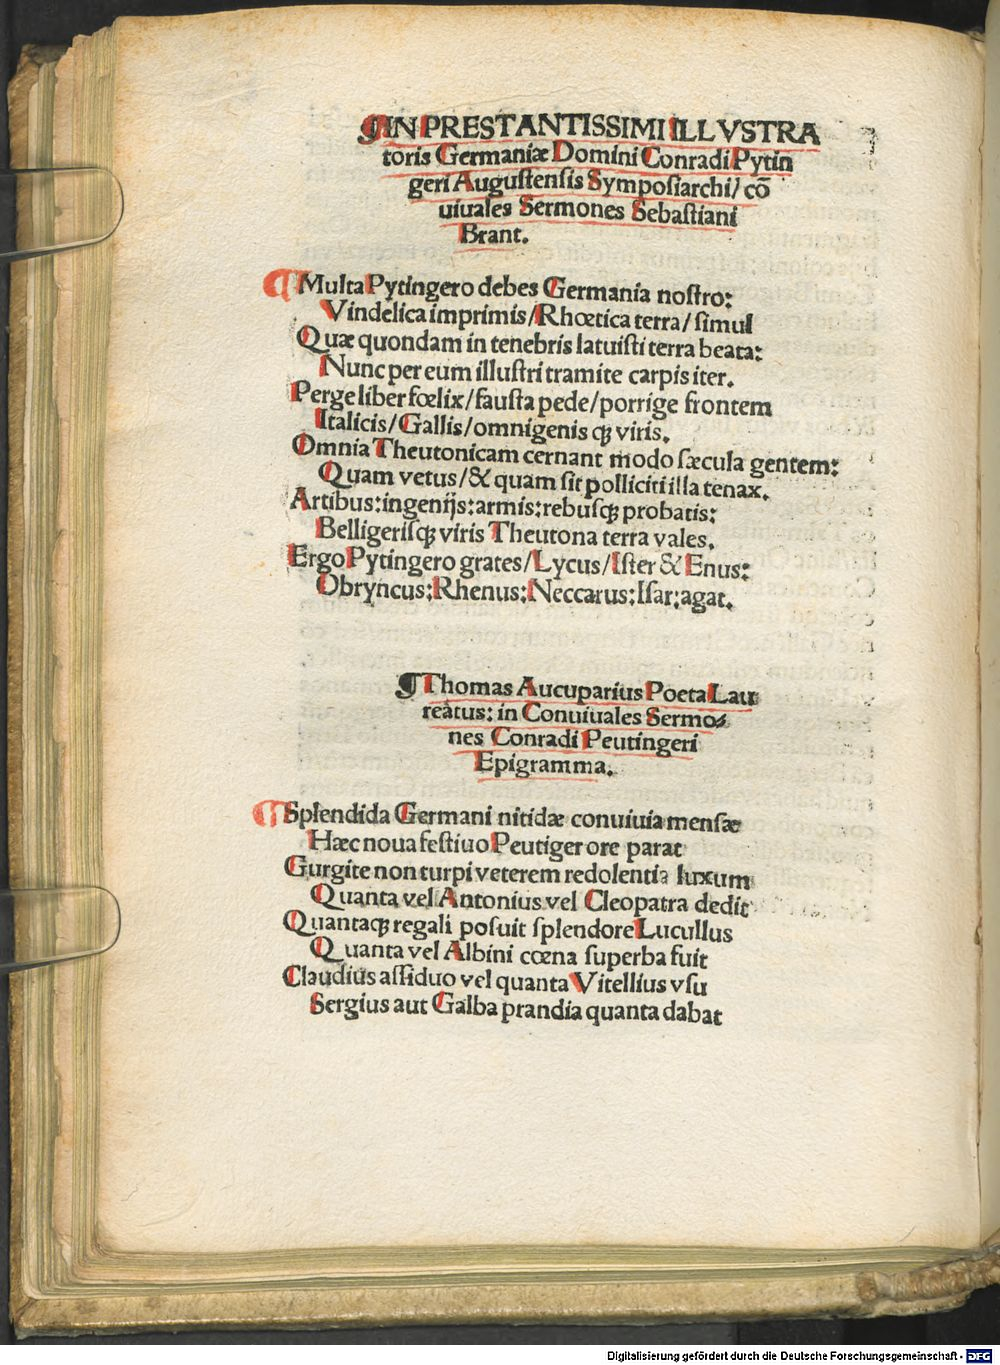 ¶IN PRESTANTISSIMI ILLVSTRA
toris Germaniæ Domini Conradi Pytin
geri Augustensis Symposiarchi/ cõ
uiuales Sermones Sebastiani
Brant.
¶Multa Pytingero debes Germania nostro:
Vindelica imprimis/Rhœtica terra/simul
Quæ quondam in tenebris latuisti terra beata:
Nunc per eum illustri tramite carpis iter.
Perge liber fœlix/fausta pede/porrige frontem
Italicis/Gallis/omnigenisqꝫ viris.
Omnia Theutonicam cernant modo sæcula gentem:
Quam vetus/& quam sit polliciti illa tenax.
Artibus:ingenijs:armis:rebusqꝫ probatis:
Belligerisqꝫ viris Theutona terra vales.
Ergo Pytingero grates/Lycus/Ister & Enus:
Obryncus:Rhenus:Neccarus:Isar:agat.
¶Thomas Aucuparius Poeta Lau
reatus: in Conuiuales Sermo⸗
nes Conradi Peutingeri
Epigramma.
¶Splendida Germani nitidæ conuiuia mensæ
Hæc noua festiuo Peutiger ore parat
Gurgite non turpi veterem redolentia luxum
Quanta vel Antonius vel Cleopatra dedit
Quantaqꝫ regali posuit splendore Lucullus
Quanta vel Albini cœna superba fuit
Claudius assiduo vel quanta Vitellius vsu
Sergius aut Galba prandia quanta dabat
Digitalisierung gefördert durch die Deutsche Forschungsgemeinschaft - DFG